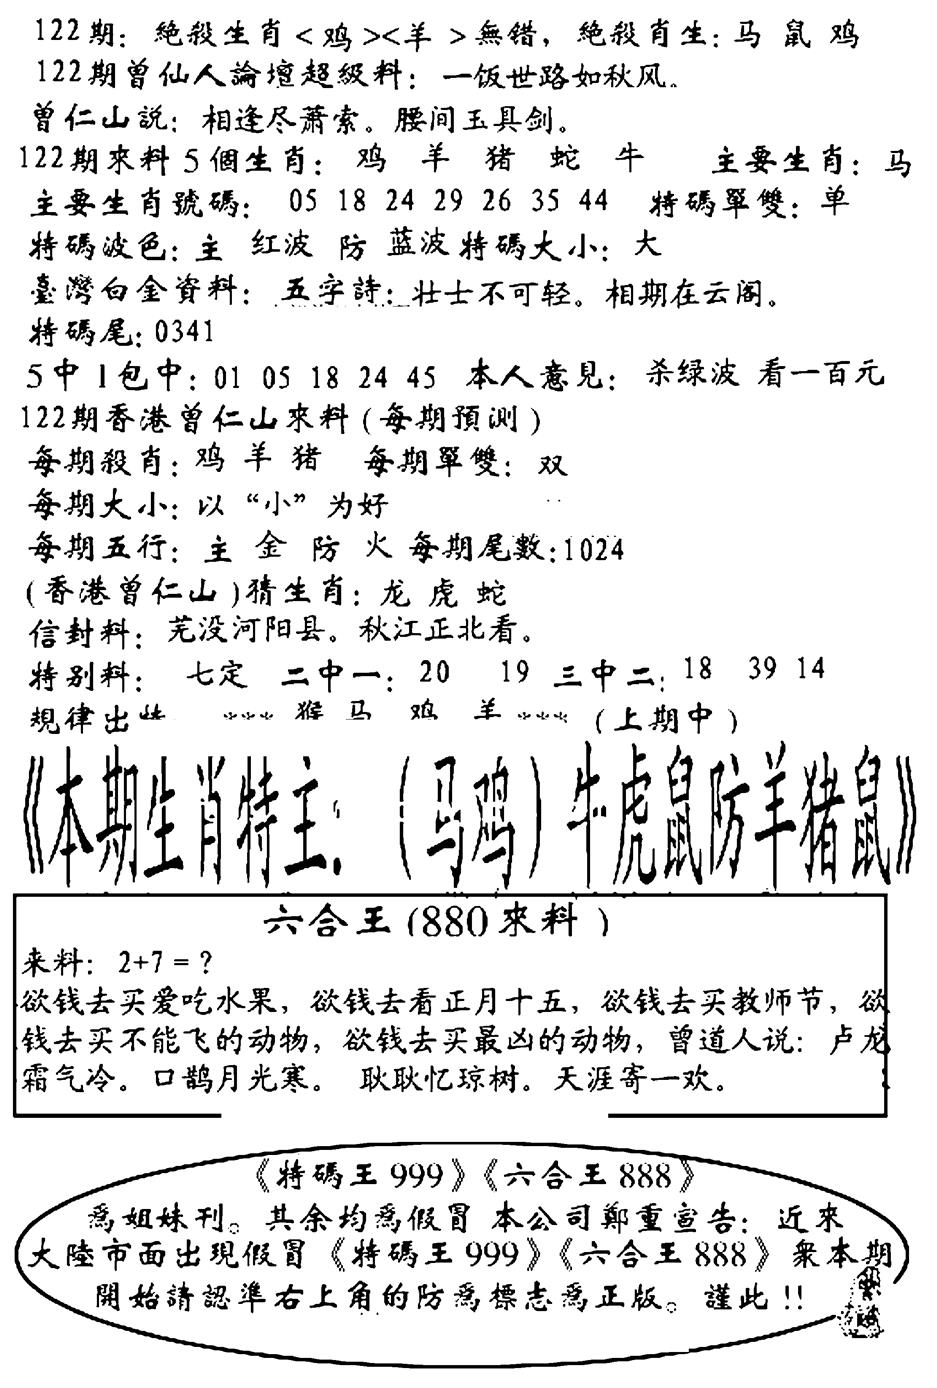 122期：絶殺生肖<鸡><羊 >無错，絶殺肖生：马 鼠 鸡
122期曾仙人論壇超級料：一饭世路如秋风。
曾仁山説：相逢尽萧索。腰间玉具剑。
122期來料5個生肖：鸡 羊 猪 蛇 牛 主要生肖：马
主要生肖號碼：05 18 24 29 26 35 44 特碼單雙：单
特碼波色：主 红波 防 蓝波 特碼大小：大
臺灣白金資料：五字詩：壮士不可轻。相期在云阁。
特碼尾：0341
5中1包中：01 05 18 24 45 本人意見：杀绿波 看一百元
122期香港曾仁山來料(每期預測)
每期殺肖：鸡 羊 猪 每期單雙：双
每期大小：以“小”为好
每期五行：主 金 防 火 每期尾數：1024
(香港曾仁山)猜生肖：龙 虎 蛇
信封料：芜没河阳县。秋江正北看。
特别料：七定 二中一：20 19 三中二：18 39 14
規律出特 *** 猴 马 鸡 羊 *** (上期中)
《本期生肖特主：(马鸡)牛虎鼠防羊猪鼠》
六合王(880來料)
来料：2+7=？
欲钱去买爱吃水果，欲钱去看正月十五，欲钱去买教师节，欲
钱去买不能飞的动物，欲钱去买最凶的动物，曾道人说：卢龙
霜气冷。口鹊月光寒。 耿耿忆琼树。天涯寄一欢。
《特碼王999》《六合王888》
爲姐妹刊。其余均爲假冒 本公司鄭重宣告：近來
大陸市面出現假冒《特碼王999》《六合王888》衆本期
開始請認準右上角的防爲標志爲正版。謹此!!